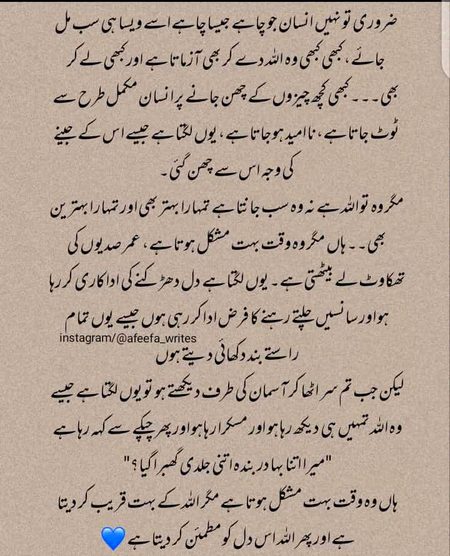 ضروری تو نہیں انسان جو چاہے جیسا چاہے اسے ویسا ہی سب مل
جائے، کبھی کبھی وہ اللہ دے کر بھی آزماتا ہے اور کبھی لے کر
بھی۔۔۔ کبھی کچھ چیزوں کے چھن جانے پر انسان مکمل طرح سے
ٹوٹ جاتا ہے، ناامید ہو جاتا ہے، یوں لگتا ہے جیسے اس کے جینے
کی وجہ اس سے چھن گئی۔
مگر وہ تو اللہ ہے نہ وہ سب جانتا ہے تمہارا بہتر بھی اور تمہارا بہترین
بھی۔۔ ہاں مگر وہ وقت بہت مشکل ہوتا ہے، عمر صدیوں کی
تھکاوٹ لے بیٹھتی ہے۔ یوں لگتا ہے دل دھڑکنے کی اداکاری کر رہا
ہو اور سانسیں چلتے رہنے کا فرض ادا کر رہی ہوں جیسے یوں تمام
instagram/@afeefa_writes
راستے بند دکھائی دیتے ہوں
لیکن جب تم سر اٹھا کر آسمان کی طرف دیکھتے ہو تو یوں لگتا ہے جیسے
وہ اللہ تمہیں ہی دیکھ رہا ہو اور مسکرا رہا ہو اور پھر چپکے سے کہہ رہا ہے
"میرا اتنا بہادر بندہ اتنی جلدی گھبرا گیا؟"
ہاں وہ وقت بہت مشکل ہوتا ہے مگر اللہ کے بہت قریب کر دیتا
ہے اور پھر اللہ اس دل کو مطمئن کر دیتا ہے 💙